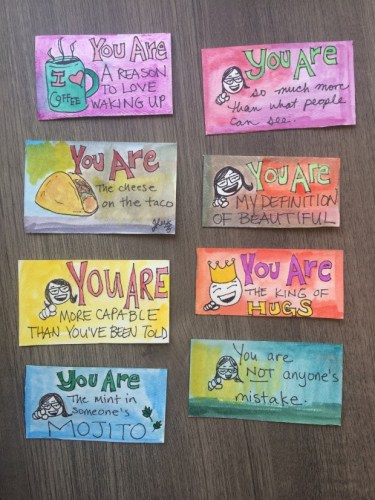 You Are
A REASON
TO LOVE
WAKING UP
I
COFFEE
You Are
The cheese
on the taco
YOU ARE
MORE CAPABLE
THAN YOU'VE BEEN TOLD
You Are
The mint in
someone's
MOJITO
You Are
so much more
than what people
can see.
You Are
MY DEFINITION
OF BEAUTIFUL
You Are
THE KING OF
HUGS
You are
NOT anyone's
mistake.